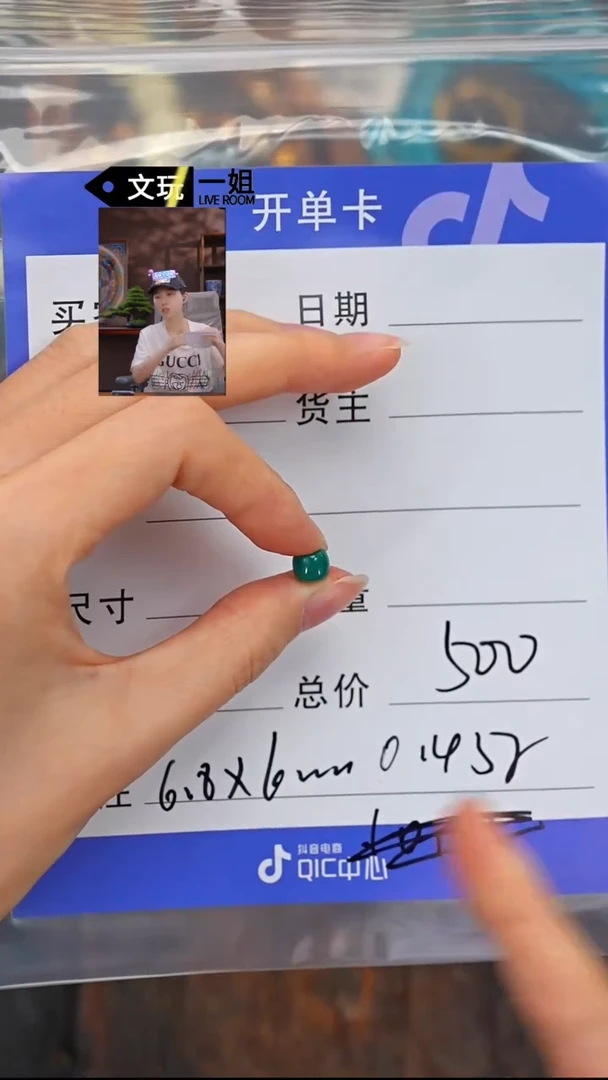 文玩 一姐
LIVE ROOM
开单卡
日期
GUCCI
货主
尺寸
总价
500
6.8×6mm 0.145g
抖音电商
QIC中心